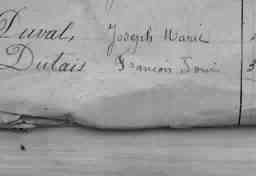 Duval, Joseph Marie
Dutais François Louis